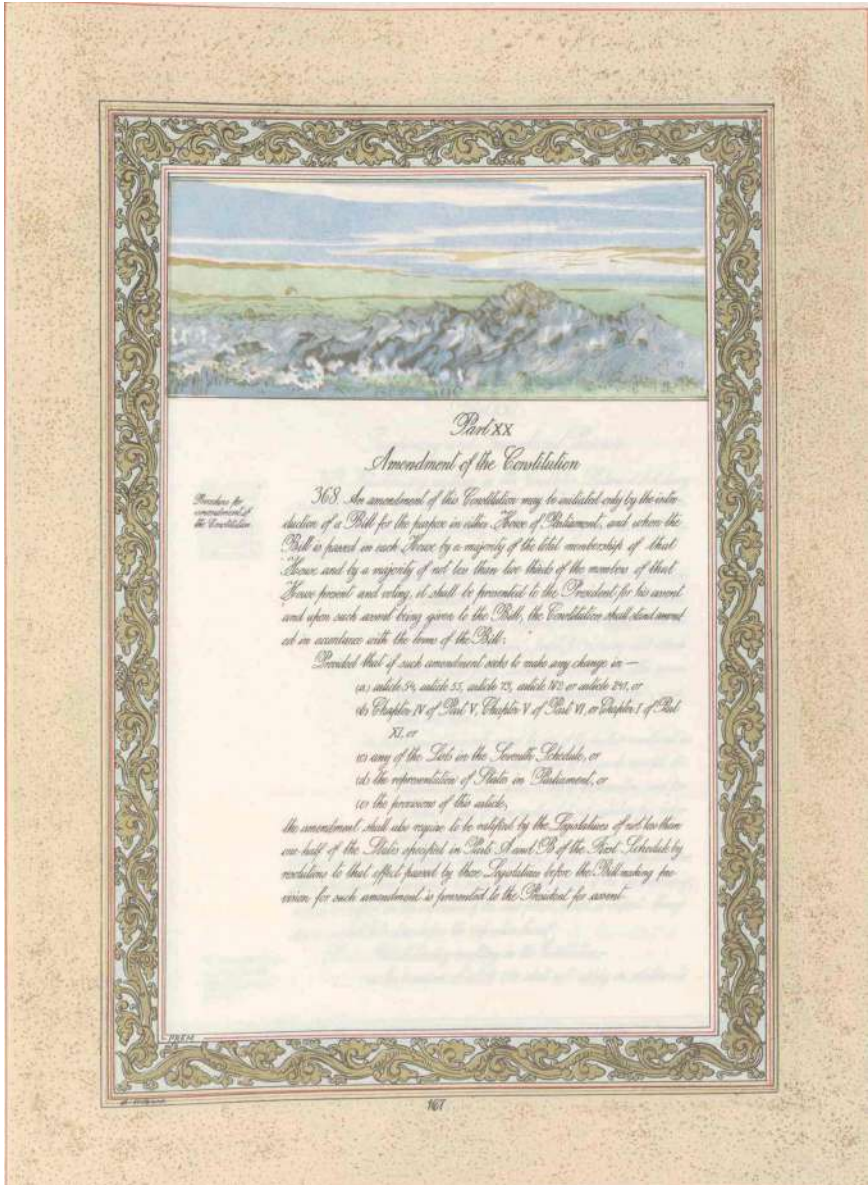 Part XX
Amendment of the Constitution
Procedure for
amendment of
the Constitution
368. An amendment of this Constitution may be initiated only by the intro-
duction of a Bill for the purpose in either House of Parliament, and when the
Bill is passed in each House by a majority of the total membership of that
House and by a majority of not less than two thirds of the members of that
House present and voting, it shall be presented to the President for his assent
and upon such assent being given to the Bill, the Constitution shall stand amend
ed in accordance with the terms of the Bill:
Provided that if such amendment seeks to make any change in —
(a) article 54, article 55, article 73, article 162 or article 241, or
(b) Chapter IV of Part V, Chapter V of Part VI, or Chapter I of Part
XI, or
(c) any of the Lists in the Seventh Schedule, or
(d) the representation of States in Parliament, or
(e) the provisions of this article,
the amendment shall also require to be ratified by the Legislatures of not less than
one-half of the States specified in Parts A and B of the First Schedule by
resolutions to that effect passed by those Legislatures before the Bill making pro-
vision for such amendment is presented to the President for assent
PREM
167